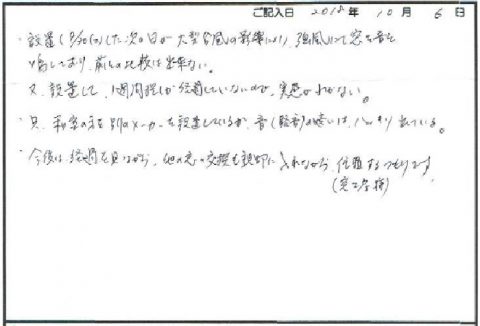 ご記入日 2018年10月6日
・設置(9/30(日))した次の日が大型台風の影響により、強風にて窓が音を
鳴しており、前との比較は出来ない。
又、設置して、1週間程しか経過していないので、実感がわかない。
・只、和室の窓 別のメーカーを設置しているが、音(騒音)の違いは、ハッキリ出ている。
・今後は、経過を見ながら、他の窓の交換も視野に入れながら、住
(完了後